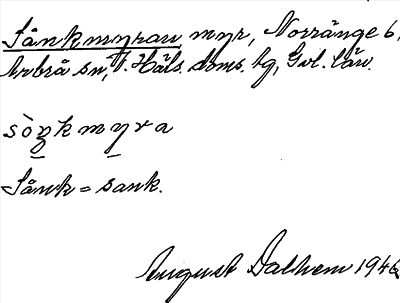 Sånkmyran myr, Norränge 6,
Arbrå sn, V. Häls. doms. hg, Gvl. län.
sòŋkmyra
Sånk = sank.
August Dalhem 1946